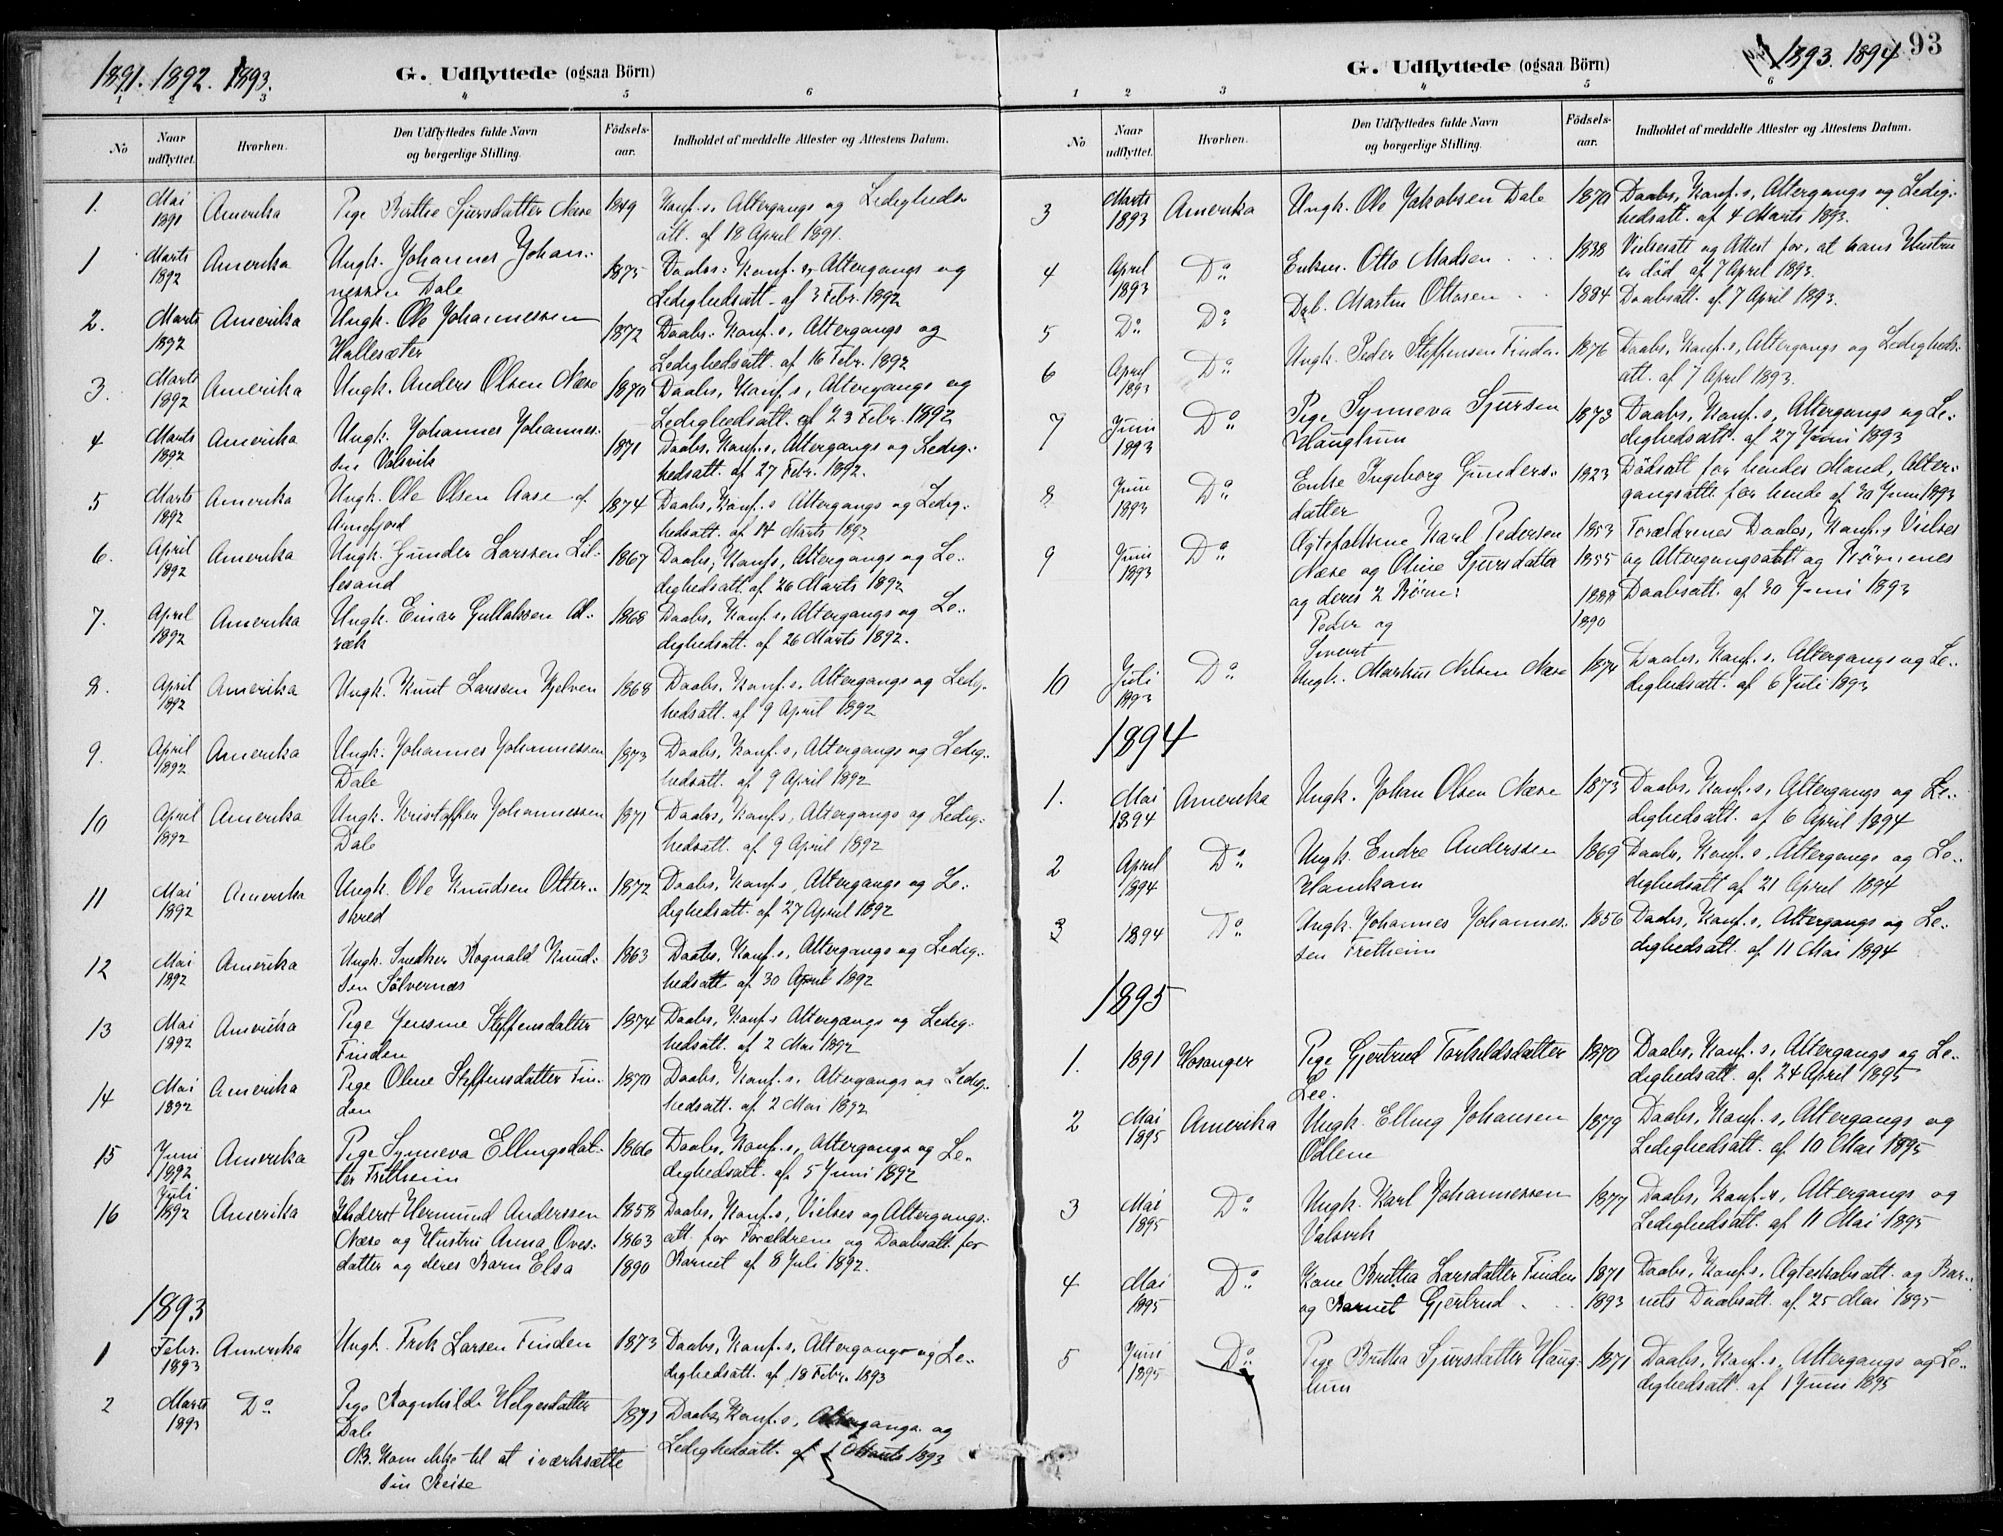 1891. 1892. 1893.
G. Udflyttede (ogsaa Börn)
1 2 3 4 5 6
No
Naar udflyttet.
Hvorhen.
Den Udflyttedes fulde Navn og borgerlige Stilling.
Födsels-aar.
Indholdet af meddelte Attester og Attestens Datum.
1. Mai 1891 Amerika Pige Brithe Sjursdatter Næse 1849 Konf.s, Altergangs og Ledigheds
att. af 18 April 1891.
1 Marts 1892 Amerika Ungk. Johannes Johan- 1875 Daabs, Konf.s, Altergangs og
nessen Dale Ledighedsatt. af 3 Febr. 1892
2. Marts 1892 Amerika Ungk. Ole Johannessen 1872 Daabs, Konf.s, Altergangs og
Hallesæter Ledighedsatt. af 16 Febr. 1892
3. Marts 1892 Amerika Ungk. Anders Olsen Næse 1870 Daabs, Konf.s, Altergangs og
Ledighedsatt. af 23 Febr. 1892
4 Marts 1892 Amerika Ungk. Johannes Johannes- 1871 Daabs, Konf.s, Altergangs og Ledig-
sen Valsvik hedsatt. af 27 Febr. 1892.
5 Marts 1892 Amerika Ungk. Ole Olsen Aase af 1874 Daabs, Konf.s Altergangs og Ledig-
Arnefjord hedsatt. af 14 Marts 1892
6. April 1892 Amerika Ungk. Gunder Larssen Lil- 1867 Daabs, Konf.s, Altergangs og Le-
lesand dighedsatt. af 26 Marts 1892
7. April 1892 Amerika Ungk. Einar Gullaksen Al- 1868 Daabs, Konf.s, Altergangs og Le-
ræk dighedsatt. af 26 Marts 1892.
8. April 1892 Amerika Ungk. Knut Larssen Kjelven 1868 Daabs, Konf.s, Altergangs og Ledig-
hedsatt. af 9 April 1892
9. April 1892 Amerika Ungk. Johannes Johannessen 1873 Daabs, Konf.s, Altergangs og Ledig-
Dale hedsatt. af 9 April 1892
10 April 1892 Amerika Ungk. Kristoffer Johannessen 1871 Daabs, Konf.s, Altergangs og Ledig-
Dale hedsatt. af 9 April 1892
11 Mai 1892 Amerika Ungk. Ole Knudsen Otter- 1872 Daabs, Konf.s, Altergangs og Le-
skred dighedsatt. af 27 April 1892
12 Mai 1892 Amerika Ungk. Snedker Rognald Knud- 1863 Daabs, Konf.s, Altergangs og Ledig-
sen Sölvernæs hedsatt. af 30 April 1892
13 Mai 1892 Amerika Pige Jensine Steffensdatter 1874 Daabs, Konf.s Altergangs og Ledig-
Finden hedsatt. af 2 Mai 1892
14 Mai 1892 Amerika Pige Oline Steffensdatter Fin- 1870 Daabs, Konf.s, Altergangs og Ledig-
den hedsatt. af 2 Mai 1892
15 Juni 1892 Amerika Pige Synneva Ellingsdat- 1866 Daabs, Konf.s, Altergangs og Le-
ter Fretheim dighedsatt. af 5 Juni 1892
16 Juli 1892 Amerika Inderst Hermund Anderssen 1858 Daabs, Konf.s, Vielses og Altergangs-
Næse og Hustru Anna Oves- 1863 att. for Forældrene og Daabsatt. for
datter og deres Barn Elsa 1890 Barnet af 8 Juli 1892.
1893
1 Febr. 1893 Amerika Ungk. Frik Larsen Finden 1873 Daabs, Konf.s, Altergangs og Le-
dighedsatt. af 18 Febr. 1893
2 Marts 1893 Do Pige Ragnhilde Helgesdatter 1871 Daabs, Konf.s, Altergangs og
Dale Ledighedsatt. af 1 Marts 1893
NB. Kom ikke til at iværksætte
sin Reise
1893. 1894
93
G. Udflyttede (ogsaa Börn)
1 2 3 4 5 6
No
Naar udflyttet.
Hvorhen.
Den Udflyttedes fulde Navn og borgerlige Stilling.
Födsels-aar.
Indholdet af meddelte Attester og Attestens Datum.
3 Marts 1893 Amerika Ungk. Ole Jakobsen Dale 1870 Daabs, Konf.s, Altergangs og Ledig-
hedsatt. af 4 Marts 1893.
4 April 1893 Do Enkem. Otto Madsen 1838 Vielsesatt og Attest for, at hans Hustru
er död af 7 April 1893.
5 Do Do Dr. Martin Ottosen 1884 Daabsatt. af 7 April 1893.
6 April 1893 Do Ungk. Peder Steffensen Finden 1876 Daabs, Konf.s, Altergangs og Ledigheds-
att. af 7 April 1893.
7 Juni 1893 Do Pige Synneva Sjursen 1873 Daabs, Konf.s, Altergangs og Le-
Hauglum dighedsatt. af 27 Juni 1893
8 Juni 1893 Do Enke Ingeborg Gunders- 1823 Dödsatt for hendes Mand, Alter-
datter gangsatt. for hende af 30 Juni 1893
9 Juni 1893 Do Ægtefolkene Karl Pedersen 1853 Forældrenes Daabs, Konf.s Vielses
Næse og Oline Sjursdatter 1855 og Altergangsatt og Börnenes
og deres 2 Börn: 1888 Daabsatt. af 30 Juni 1893
Peder og 1890
Sivert
10 Juli 1893 Do Ungk. Markus Nilsen Næse 1874 Daabs, Konf.s, Altergangs og Le-
dighedsatt. af 6 Juli 1893
1894
1. Mai 1894 Amerika Ungk. Johan Olsen Næse 1873 Daabs, Konf.s, Altergangs og Le-
dighedsatt. af 6 April 1894
2 April 1894 Do Ungk. Endre Anderssen 1869 Daabs, Konf.s, Altergangs og Le-
Hamkam dighedsatt af 21 April 1894
3 1894 Do Ungk. Johannes Johannes- 1856 Daabs, Konf.s, Altergangs og Le-
sen Fretheim dighedsatt. af 11 Mai 1894
1895
1. 1891 Hosanger Pige Gjertrud Torkildsdatter 1870 Daabs, Konf.s, Altergangs og Le-
Lee. dighedsatt. af 24 April 1895
2 Mai 1895 Amerika Ungk. Elling Johansen 1879 Daabs, Konf.s, Altergangs og
Ödlene Ledighedsatt. af 10 Mai 1895
3 Mai 1895 Do Ungk. Karl Johannessen 1877 Daabs, Konf.s, Altergangs og
Valsvik Ledighedsatt. af 11 Mai 1895
4 Mai 1895 Do Kone Britha Larsdatter Finden 1871 Daabs, Konf.s, Ægteskabsatt. og Bar-
og Barnet Gjertrud 1893 nets Daabsatt. af 25 Mai 1895
5 Juni 1895 Do Pige Britha Sjursdatter Haug- 1871 Daabs, Konf.s, Altergangs og Le-
lum dighedsatt. af 1 Juni 1895